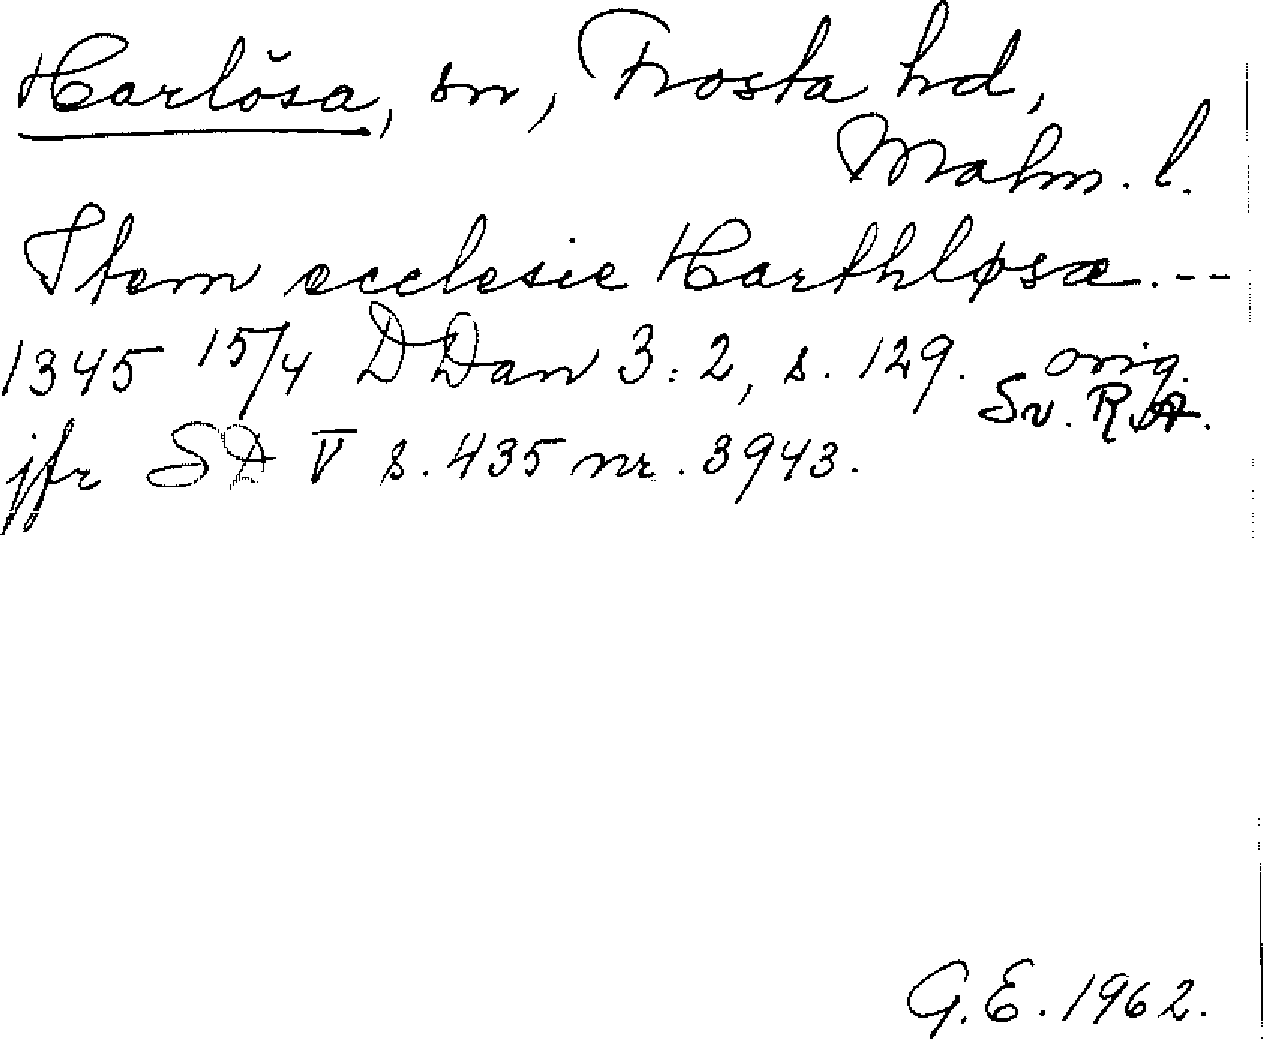 Harlösa, sn, Frosta hd,
Malm. l.
Item ecclesie Harthløsæ. --
1345 15/4 D Dan 3:2, s. 129. orig.
Sv. R.A.
jfr SD V s. 435 nr. 3943.
G.E. 1962.